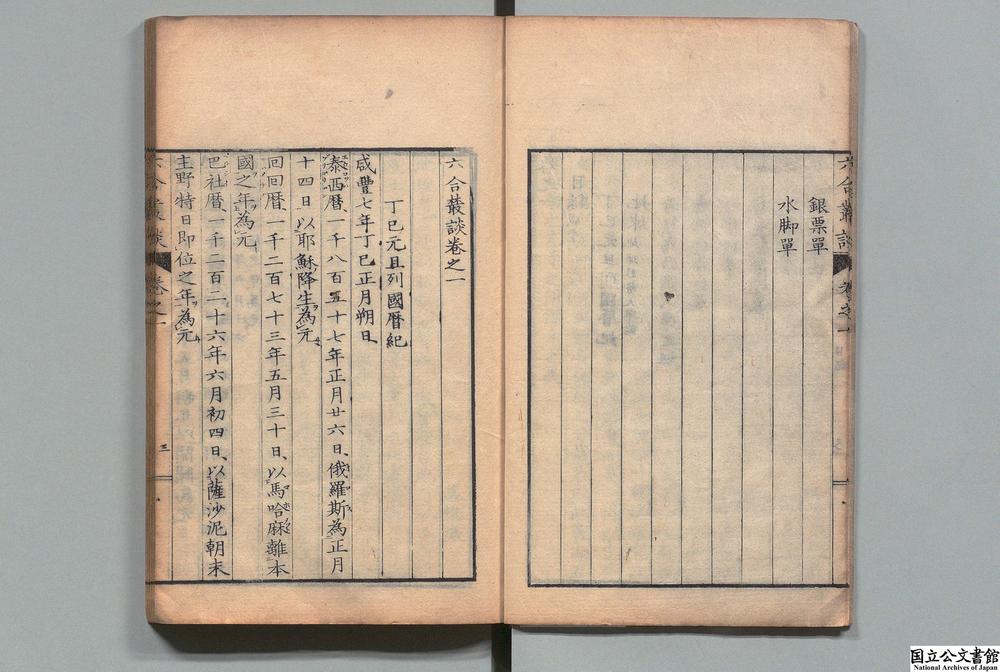 銀票單
水脚單
六合叢談 卷之一
六合叢談卷之一
丁巳元旦列國暦紀
咸豐七年丁巳正月朔日
泰西暦、一千八百五十七年正月廿六日、俄羅斯為正月
十四日以耶穌降生為元
回回暦、一千二百七十三年五月三十日、以馬哈麻離本
國之年為元
巴社暦、一千二百二十六年六月初四日、以薩沙泥朝末
主野特日即位之年為元
六合叢談 卷之一 三
国立公文書館
National Archives of Japan